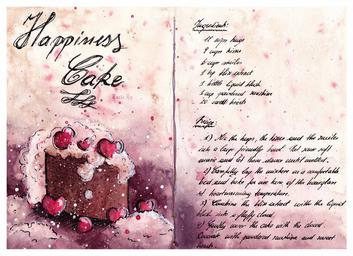 Happiness
Cake
Ingredients:
12 cups hugs
9 cups kisses
6 cups smiles
1 tsp bliss extract
1 bottle liquid
1 cup powdered sunshine
20 sweet hearts
1) Mix the hugs, the kisses and the smiles
into a large friendly bowl. Put your soft
music and let them dance until melted.
2) Carefully lay the mixture in a comfortable
bed and bake for one hour at the
heartwarming temperature.
3) Combine the bliss extract with the liquid
into a fluffy cloud.
4) Gently cover the cake with the cloud.
Decorate with powdered sunshine and sweet
hearts.